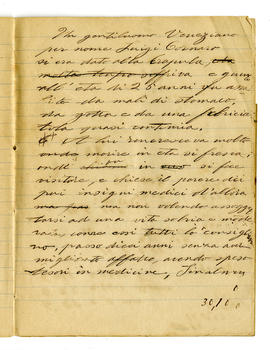 Un gentiluomo Veneziano
per nome Luigi Cornaro
si era dato alla crapula
molto tempo soffriva e quan
all'età di 25 anni fu assa
lito da mali di stomaco,
da gotta e da una
continua.
A lui rincresceva molto
morire in età si fresca,
ondi si fece
visitare, e chiese il parere dei
più insigni medici d'allora
ma non volendo assogget
tarsi ad una vita sobria e mode
rata come così tutti lo consiglia
no, passò dieci anni senza
migliorare affatto, avendo speso
tesori in medicine, Finalmen
30/10